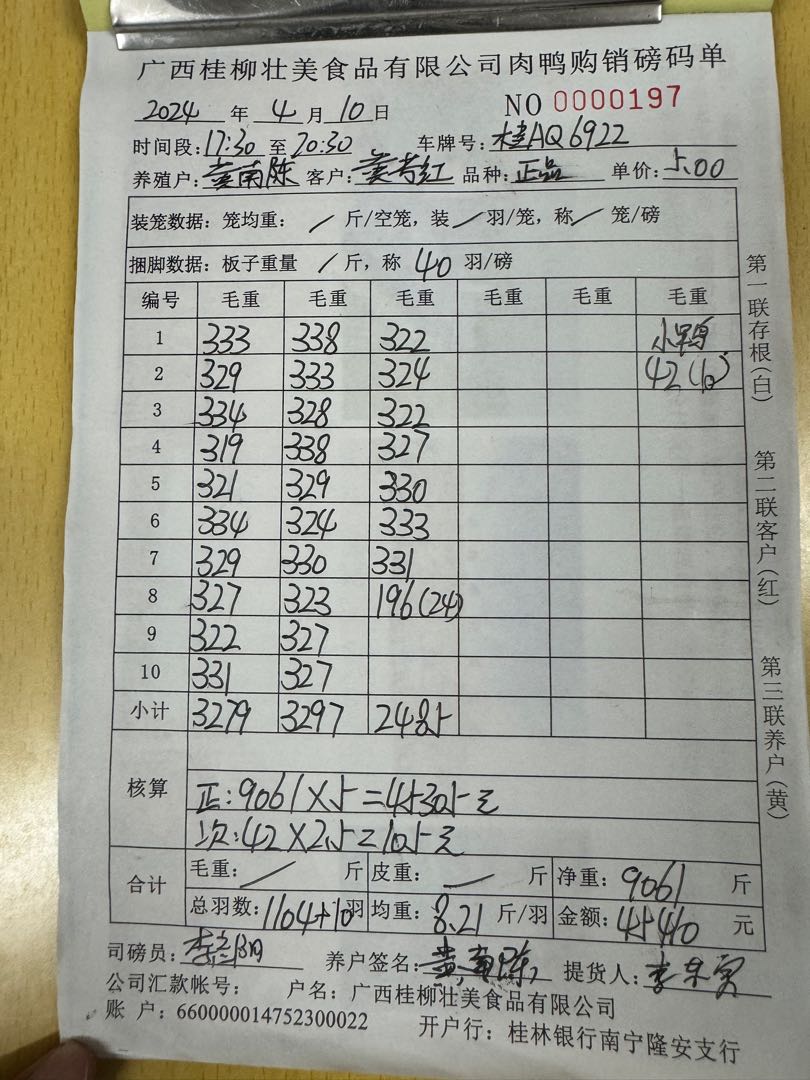 广西桂柳壮美食品有限公司肉鸭购销磅码单
2024 年 4 月 10 日 NO 0000197
时间段: 17:30 至 20:30 车牌号: 桂AQ6922
养殖户: 黄南陈 客户: 品种: 正品 单价: 5.00
装笼数据: 笼均重: / 斤/空笼, 装 / 羽/笼, 称 / 笼/磅
捆脚数据: 板子重量 / 斤, 称 40 羽/磅
编号 毛重 毛重 毛重 毛重 毛重 毛重
1 333 338 322 小鸭
2 329 333 324 42(10)
3 334 328 322
4 319 338 327
5 321 329 330
6 334 324 333
7 329 330 331
8 327 323 196(24)
9 322 327
10 331 327
小计 3279 3297 2485
核算
正:9061×5=45305元
次:42×2.5=105元
合计
毛重: / 斤 皮重: / 斤 净重: 9061 斤
总羽数: 1104+10 羽 均重: 8.21 斤/羽 金额: 45410 元
司磅员: 养户签名: 黄南陈 提货人:
公司汇款帐号: 户名: 广西桂柳壮美食品有限公司
账 户: 660000014752300022 开户行: 桂林银行南宁隆安支行
第一联存根(白)
第二联客户(红)
第三联养户(黄)